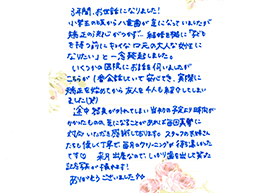 3年間、お世話になりました!
小学生の頃から八重歯が気になっていましたが
矯正の決心がつかず… 結婚を機に「子ども
を持つ前にきれいな口元の大人な女性に
なりたい」と一念発起しました。
いくつかの医院にお話を伺いましたが
こちらが1番会話していて安心でき、実際に
矯正を始めてから友人を4人も紹介してしまい
ました(笑)
途中 器具が外れてしまい当初の予定より時間が
かかったものの、気になることがあれば毎回真摯に
対応いただき感謝しております。スタッフのお姉さん
たちも優しく丁寧で毎月のクリーニングが待ち遠しかった
です☆ 来月出産なので、しっかり歯を出して笑った
記念写真が撮れます!
ありがとうございました^^